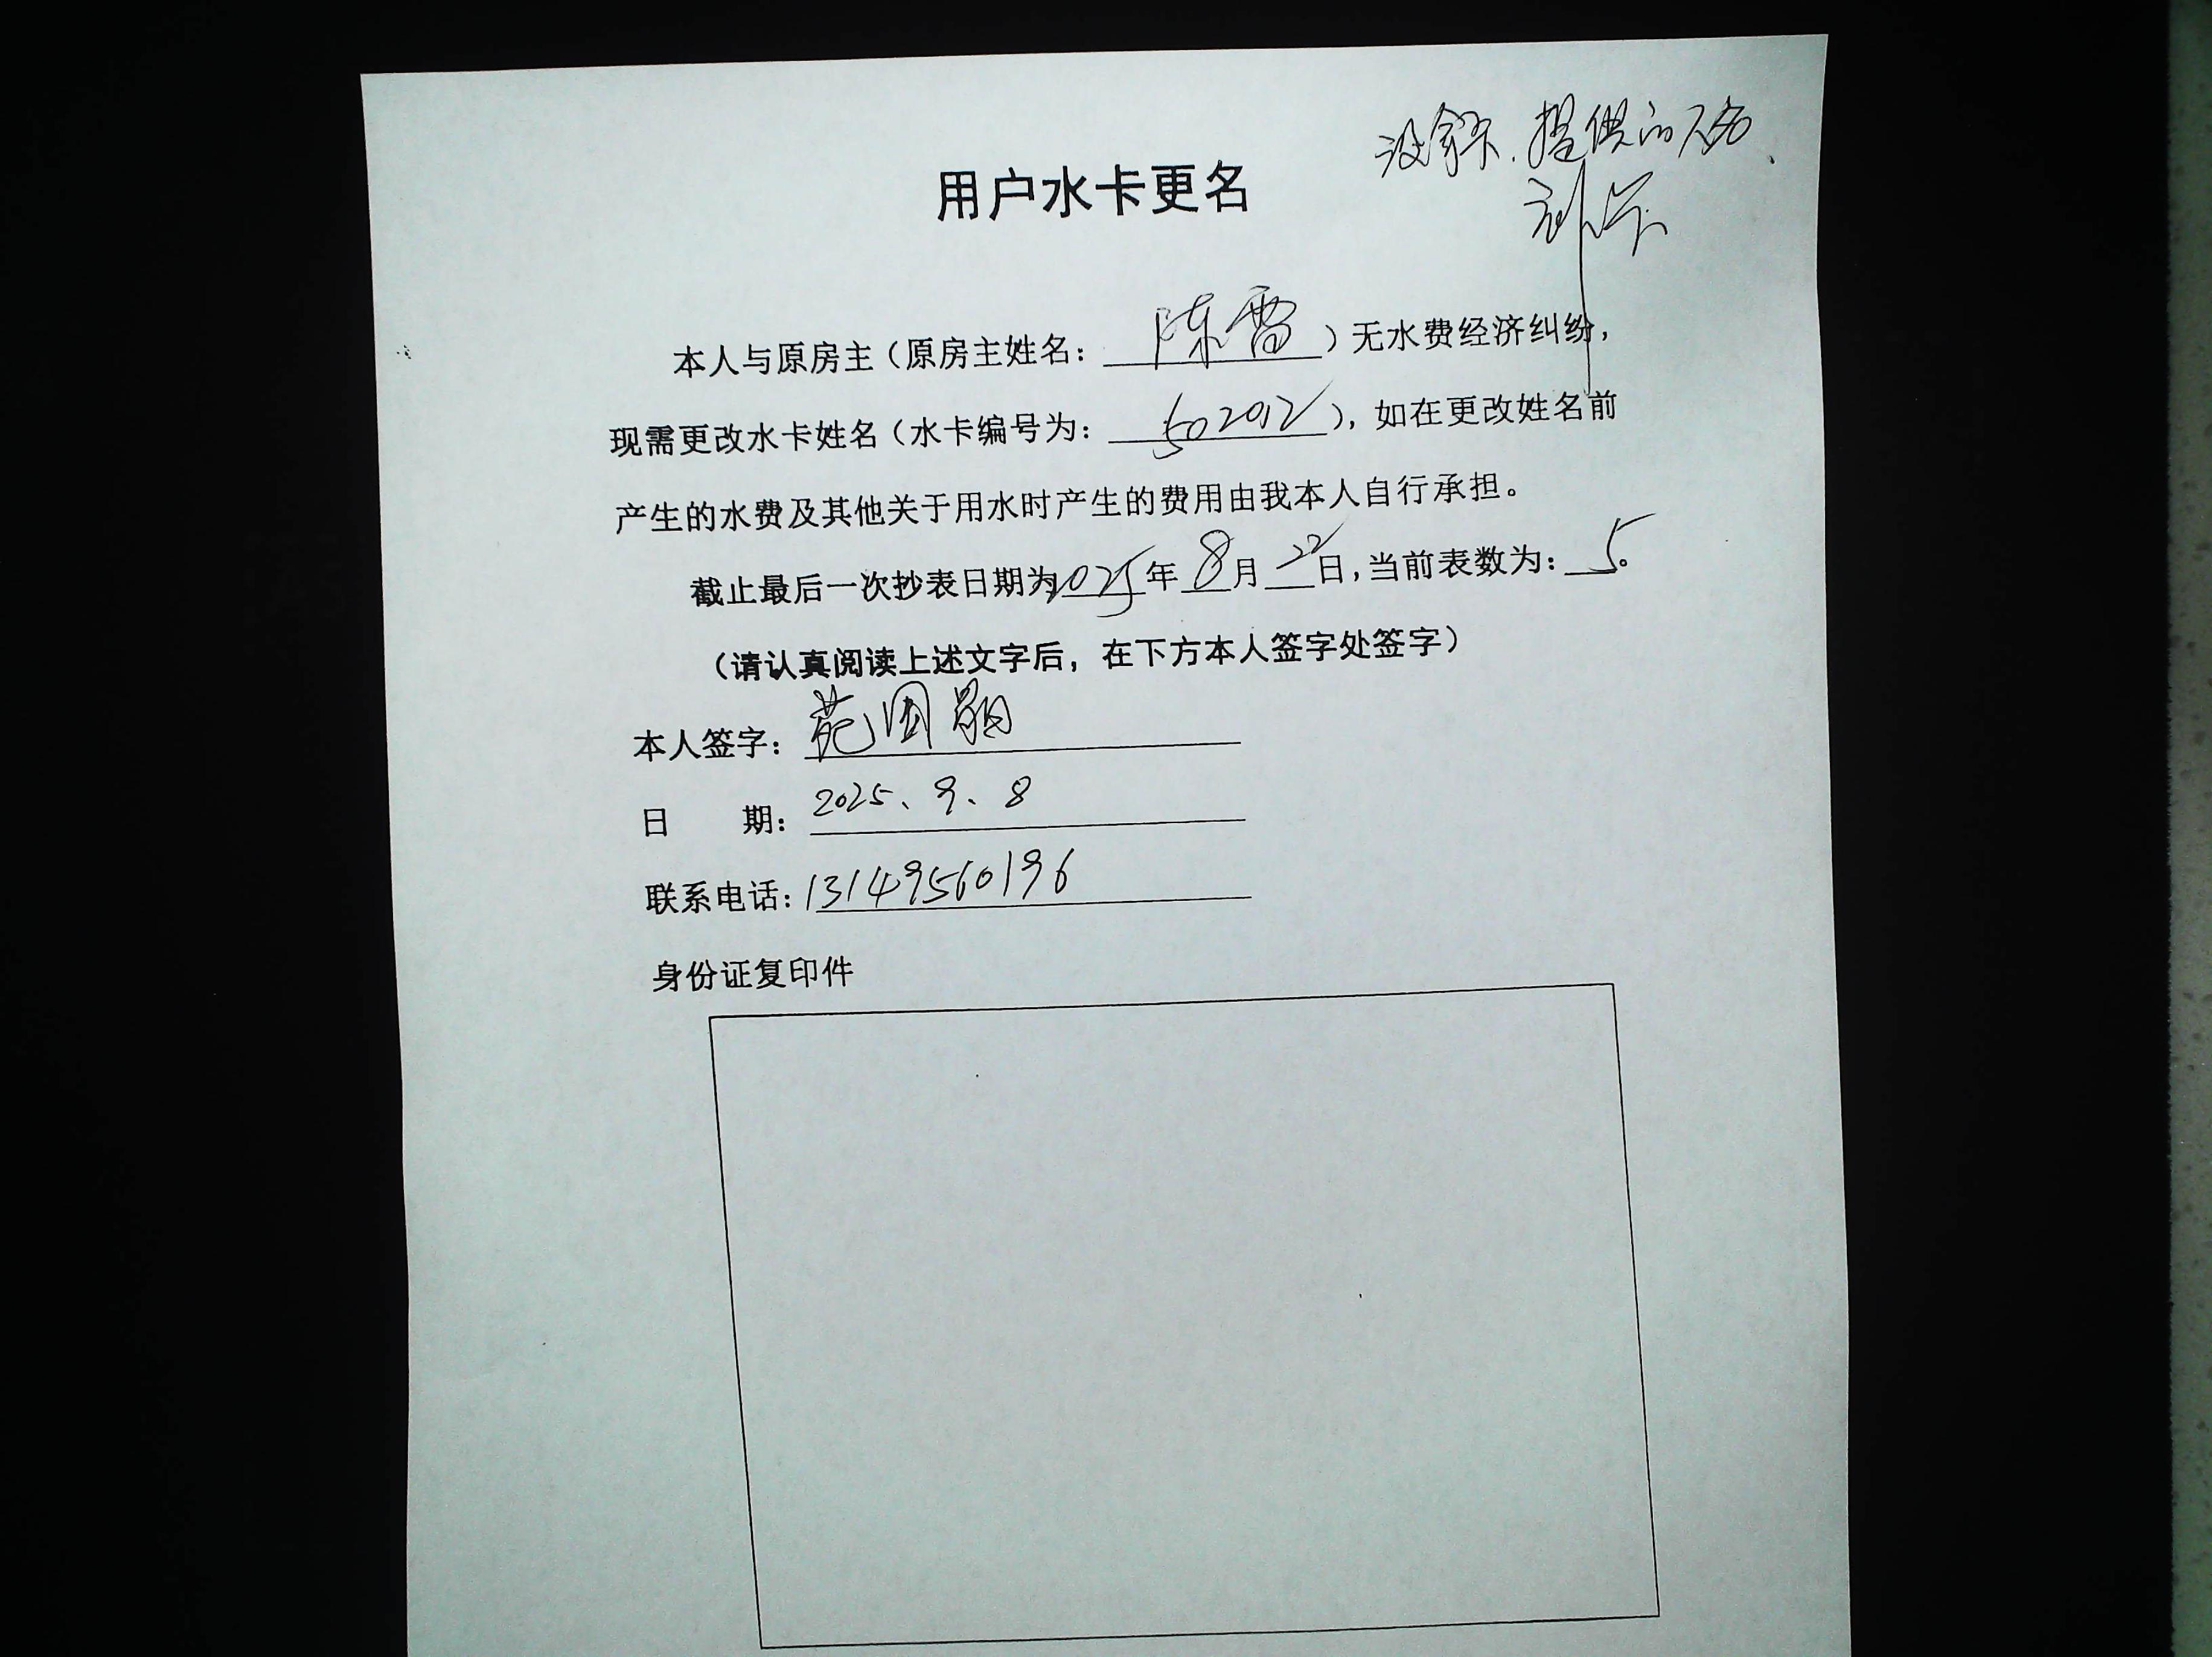 没拿卡.提供的人名、
补卡
用户水卡更名
本人与原房主（原房主姓名：陈雷）无水费经济纠纷，
现需更改水卡姓名（水卡编号为：502012），如在更改姓名前
产生的水费及其他关于用水时产生的费用由我本人自行承担。
截止最后一次抄表日期为2025年8月22日,当前表数为：5。
（请认真阅读上述文字后，在下方本人签字处签字）
本人签字：苑国
日 期：2025、9、8
联系电话：13149560196
身份证复印件